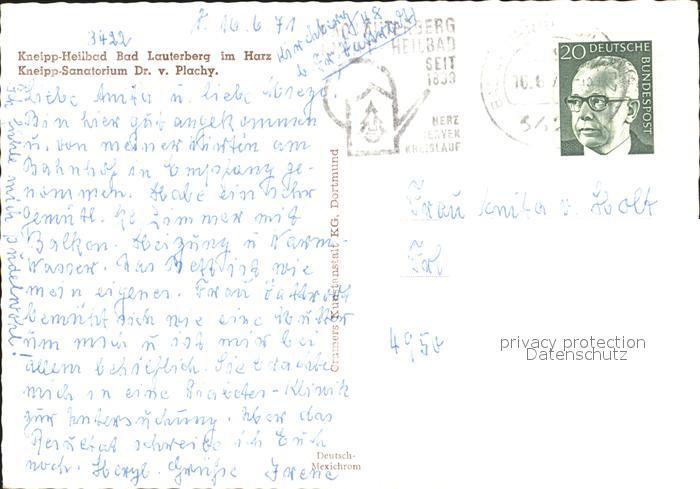 3422
d. 16.6.71
Kirchberg 48
b. Fr.
Kneipp-Heilbad Bad Lauterberg im Harz
Kneipp-Sanatorium Dr. v. Plachy.
Liebe Anita u. liebe
Bin hier gut angekommen
u. von meiner Wirtin am
Bahnhof in Empfang ge-
nommen. Habe ein sehr
gemütl. Zimmer mit
Balkon. Heizung u Warm-
Wasser. Das Bett ist wie
mein eigenes. Frau
bemüht sich wie eine Mutter
um mich u ist mir bei
allem behilflich. Sie brachte
mich in eine Diabetes-Klinik
zur Untersuchung. Über das
Resultat schreibe ich Euch
noch. Herzl. Grüße Irene
Ich fühle mich pudelwohl!
Cramers Kunstanstalt KG, Dortmund
Deutsch-
Mexichrom
LAUTERBERG
HEILBAD
SEIT
1839
HERZ
NERVEN
KREISLAUF
16.6.7
342
20 DEUTSCHE
BUNDESPOST
Frau Anita v. Holt
Frl
4950
privacy protection
Datenschutz